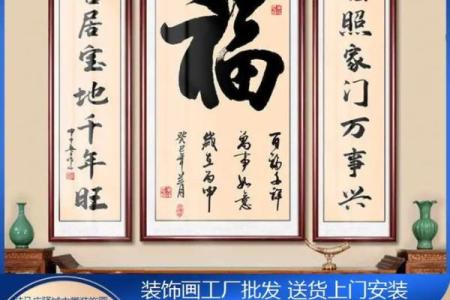 照家门万事兴
福
百福千祥
萬事如意
歲在丙申
癸巳年
居宝地千年旺
装饰画工厂批发 送货上门安装